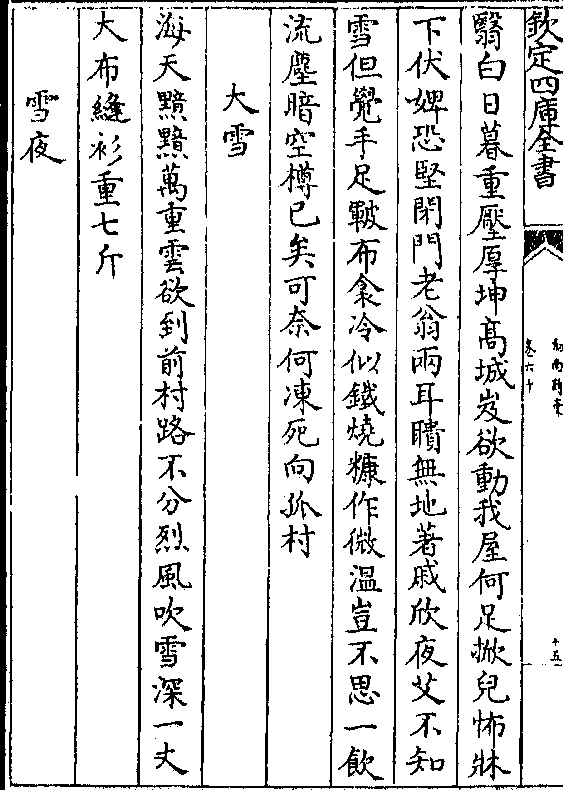 欽定四庫全書
劒南詩稾
卷六十
十五
翳白日暮重壓厚坤髙城岌欲動我屋何足掀兒怖牀
下伏婢恐堅閉門老翁兩耳聵無地著戚欣夜艾不知
雪但覺手足皸布衾冷似鐵燒糠作微温豈不思一飲
流塵暗空樽已矣可奈何凍死向孤村
大雪
海天黯黯萬重雲欲到前村路不分烈風吹雪深一丈
大布縫衫重七斤
雪夜